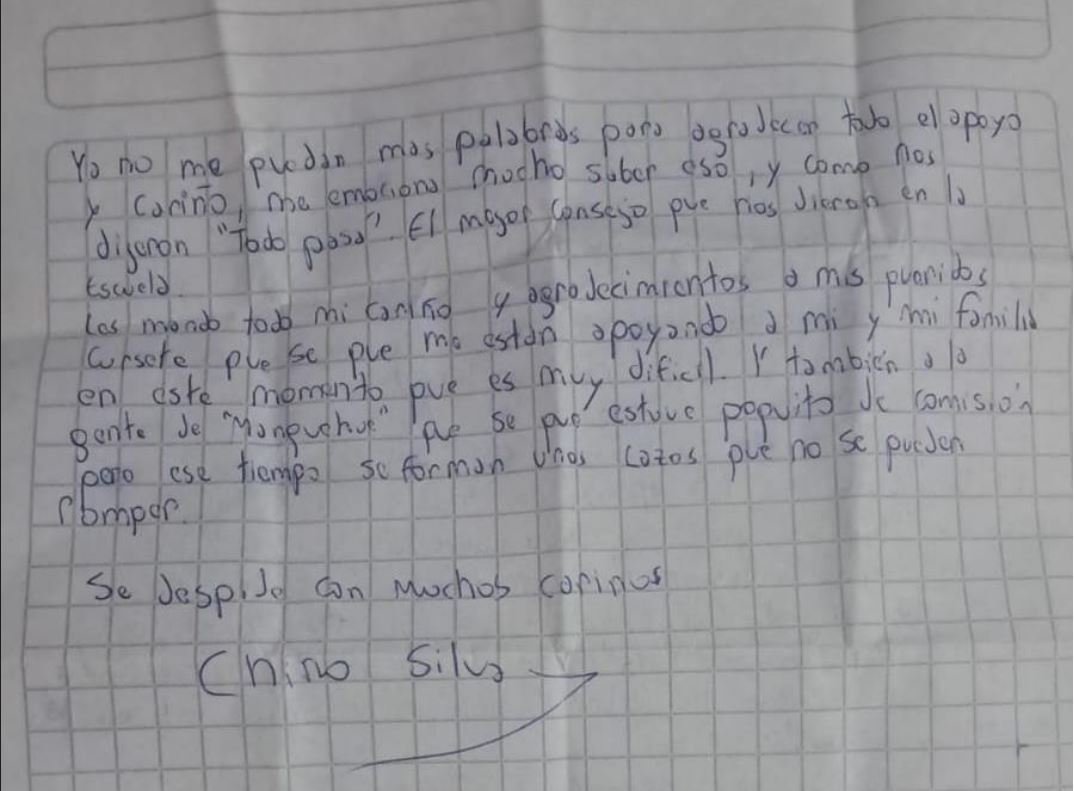 Yo no me quedan mas palabras para agradecer todo el apoyo
y cariño, me emociona mucho saber eso, y como nos
dijeron "Todo pasa". El mejor consejo que nos dieron en la
Escuela.
Les mando todo mi cariño y agradecimientos a mis queridos
Cursete que se que me están apoyando a mi y mi familia
en este momento que es muy dificil. Y también a la
gente de "Monquehue" que se que estuve poquito de comisión
pero ese tiempo se forman unos lazos que no se pueden
romper.
Se despide con muchos cariños
Chino Silva